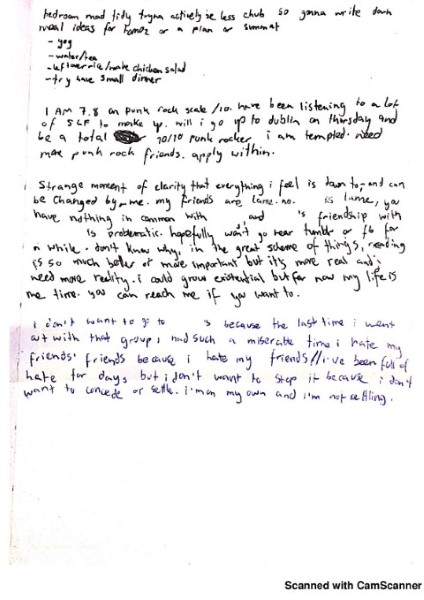 bedroom mad tidy tryna actively be less chub so gonna write down
meal ideas for tomoz or a plan or summat
- yog
- water/tea
- leftover rice/make chicken salad
- try have small dinner
I AM 7.8 on punk rock scale /10. have been listening to a lot
of SLF to make up. will i go up to dublin on thursday and
be a total 10/10 punk rocker i am tempted. need
more punk rock friends. apply within.
Strange moment of clarity that everything i feel is down to, and can
be changed by, me. my friends are lame. no. is lame, you
have nothing in common with , and 's friendship with
is problematic. hopefully won't go near tumblr or fb for
a while. don't know why, in the great scheme of things, reading
is so much better or more important but it's more real and i
need more reality. i could grow existential but for now my life is
me time. you can reach me if you want to.
i don't want to go to 's because the last time i went
out with that group i had such a miserable time i hate my
friends' friends because i hate my friends // i've been full of
hate for days but i don't want to stop it because i don't
want to concede or settle. i'm on my own and i'm not settling.
Scanned with CamScanner